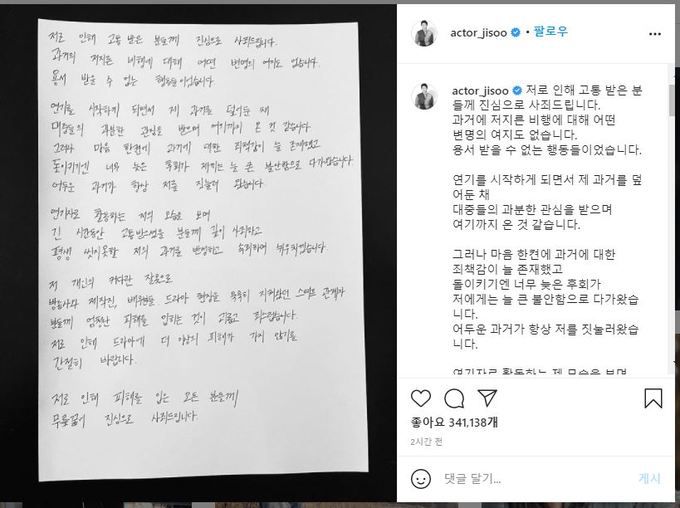 저로 인해 고통 받은 분들께 진심으로 사죄드립니다.
과거의 저지른 비행에 대해 어떤 변명의 여지도 없습니다.
용서 받을 수 없는 행동들이었습니다.
연기를 시작하게 되면서 제 과거를 덮어둔 채
대중들의 과분한 관심을 받으며 여기까지 온 것 같습니다.
그러나 마음 한켠에 과거에 대한 죄책감이 늘 존재했고
돌이키기엔 너무 늦은 후회가 저에게는 늘 큰 불안함으로 다가왔습니다.
어두운 과거가 항상 저를 짓눌러 왔습니다.
연기자로 활동하는 제 모습을 보며
긴 시간동안 고통받으셨을 분들께 깊이 사죄하고
평생 씻지못할 저의 과거를 반성하고 속죄하며 뉘우치겠습니다.
저 개인의 커다란 잘못으로
방송사와 제작진, 배우분들 드라마 현장을 묵묵히 지켜왔던 스텝분들 관계자
분들께 엄청난 피해를 입히는 것이 괴롭고 죄스럽습니다.
저로 인해 드라마에 더 이상의 피해가 가지 않기를
간절히 바랍니다.
저로 인해 피해를 입은 모든 분들께
무릎꿇어 진심으로 사죄드립니다.
actor_jisoo • 팔로우
actor_jisoo 저로 인해 고통 받은 분
들께 진심으로 사죄드립니다.
과거에 저지른 비행에 대해 어떤
변명의 여지도 없습니다.
용서 받을 수 없는 행동들이었습니다.
연기를 시작하게 되면서 제 과거를 덮
어둔 채
대중들의 과분한 관심을 받으며
여기까지 온 것 같습니다.
그러나 마음 한켠에 과거에 대한
죄책감이 늘 존재했고
돌이키기엔 너무 늦은 후회가
저에게는 늘 큰 불안함으로 다가왔습
니다.
어두운 과거가 항상 저를 짓눌러왔습
니다.
연기자로 활동하는 제 모습을 보며
좋아요 341,138개
2시간 전
댓글 달기...
게시